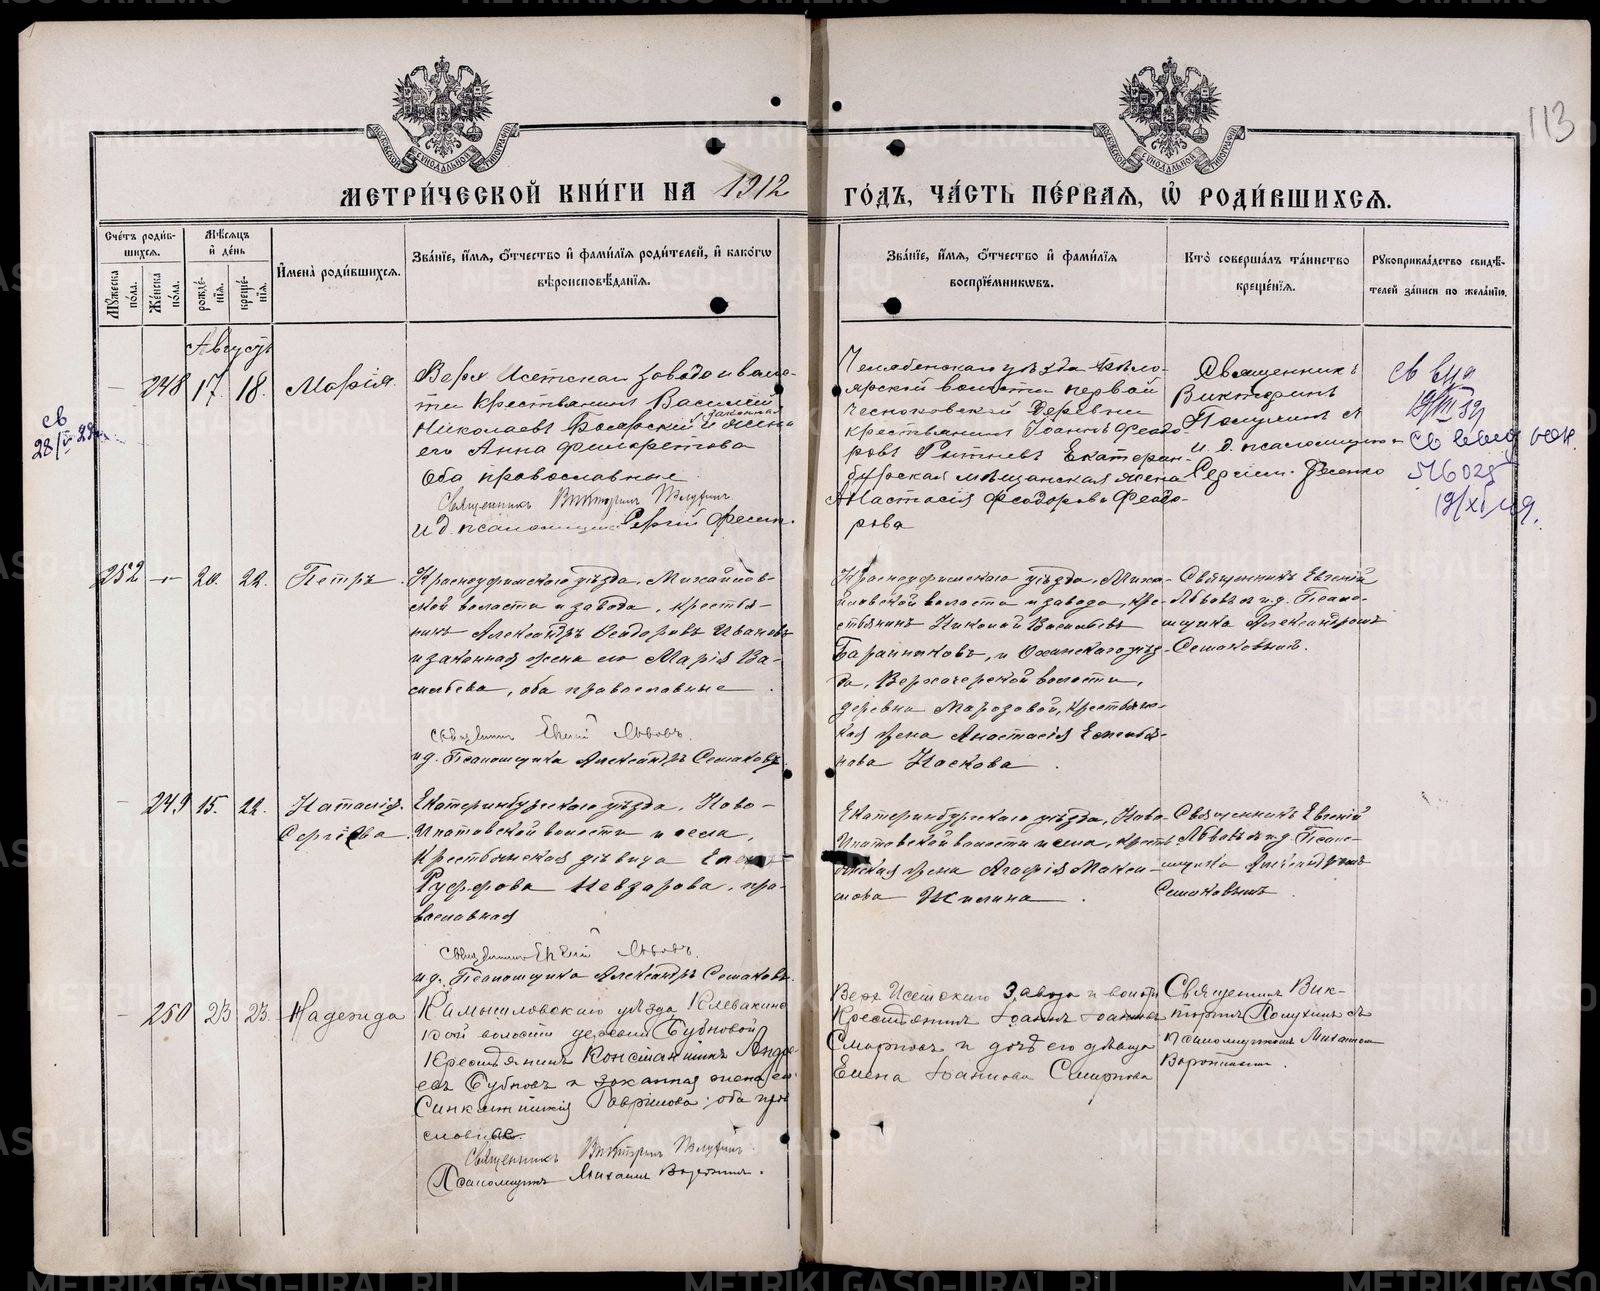 113
МОСКОВСКОЙ СѴНОДАЛЬНОЙ ТИПОГРАФІИ
МОСКОВСКОЙ СѴНОДАЛЬНОЙ ТИПОГРАФІИ
МЕТРИ́ЧЕСКОЙ КНИ́ГИ НА 1912
ГО́ДЪ, ЧА́СТЬ ПЕ́РВАѦ, Ѡ҆ РОДИ́ВШИХСѦ.
Сче́тъ роди́в-
шихсѧ.
Мꙋ́жеска по́ла.
Же́нска по́ла.
Мѣ́сѧцъ и҆ де́нь
рожде́-нїѧ.
креще́-нїѧ.
И҆мена̀ роди́вшихсѧ.
Зва́нїе, и҆́мѧ, ѻ҆́тчество и҆ фами́лїѧ роди́телей, и҆ како́гѡ
вѣроисповѣ́данїѧ.
Зва́нїе, и҆́мѧ, ѻ҆́тчество и҆ фами́лїѧ
воспрїе́мникѡвъ.
Кто̀ соверша́лъ та́инство
креще́нїѧ.
Рꙋкоприкла́дство свидѣ́-
телей за́писи по жела́нїю.
Августъ
248 17. 18. Марія.
Верх Исетскаго завода и воло-
сти крестьянинъ Василій
Николаевъ Боярскій и законная жена
его Анна Филаретова
Оба православные
Священникъ Викторинъ
и. д. псаломщика Сергій
Челябинскаго уѣзда
волости первой
Чесноковской деревни
крестьянинъ Іоаннъ Федо-
ровъ Екатерин-
бургская мѣщанская жена
Анастасія Феодорова Федо-
рова
Священникъ
Викторинъ
и. д. псаломщика
Сергіем
252 — 20. 22. Петръ.
Красноуфимскаго уѣзда, Михайлов-
ской волости и завода, крестья-
нинъ Александръ Ѳедоровъ Ивановъ
и законная жена его Марія Ва-
сильева, оба православные.
Священникъ Евгеній Львовъ.
и д. Псаломщика Александръ Семаковъ
Красноуфимскаго уѣзда, Миха-
йловской волости и завода, кре-
стьянинъ Николай Васильевъ
и Оханскаго уѣз-
да, волости,
деревни Морозовой, крестьянс-
кая жена Анастасія Емелья-
нова Носкова.
Священникъ Евгеній
Львовъ и д. Псало-
мщика Александромъ
Семаковымъ.
— 249 15. 22. Наталія.
Сергѣева.
Екатеринбургскаго уѣзда, Ново-
Ипатовской волости и села,
Крестьянская дѣвица
Руффова Невзарова, пра-
вославная
Священникъ Евгеній Львовъ.
и д. Псаломщика Александръ Семаковъ.
Екатеринбургскаго уѣзда, Ново-
Ипатовской волости и села, кресть-
янская жена Агафія Макси-
мова Жилина.
Священникъ Евгеній
Львовъ и д. Псало-
мщика Александромъ
Семаковымъ.
— 250 23 23. Надежда
Камышловскаго уѣзда Клевакинс-
кой волости деревни Бубновой
Крестьянинъ Константинъ Андре-
евъ Бубновъ и законная жена его
Гаврилова; оба пра-
славные.
Священникъ Викторинъ
Псаломщикъ Михаилъ
Верх Исетскаго Завода и волости
Крестьянинъ Іоаннъ Іоанновъ
Смирновъ и дочь его дѣвица
Елена Іоаннова Смирнова
Священник Вик-
торинъ съ
псаломщикомъ Михаиломъ